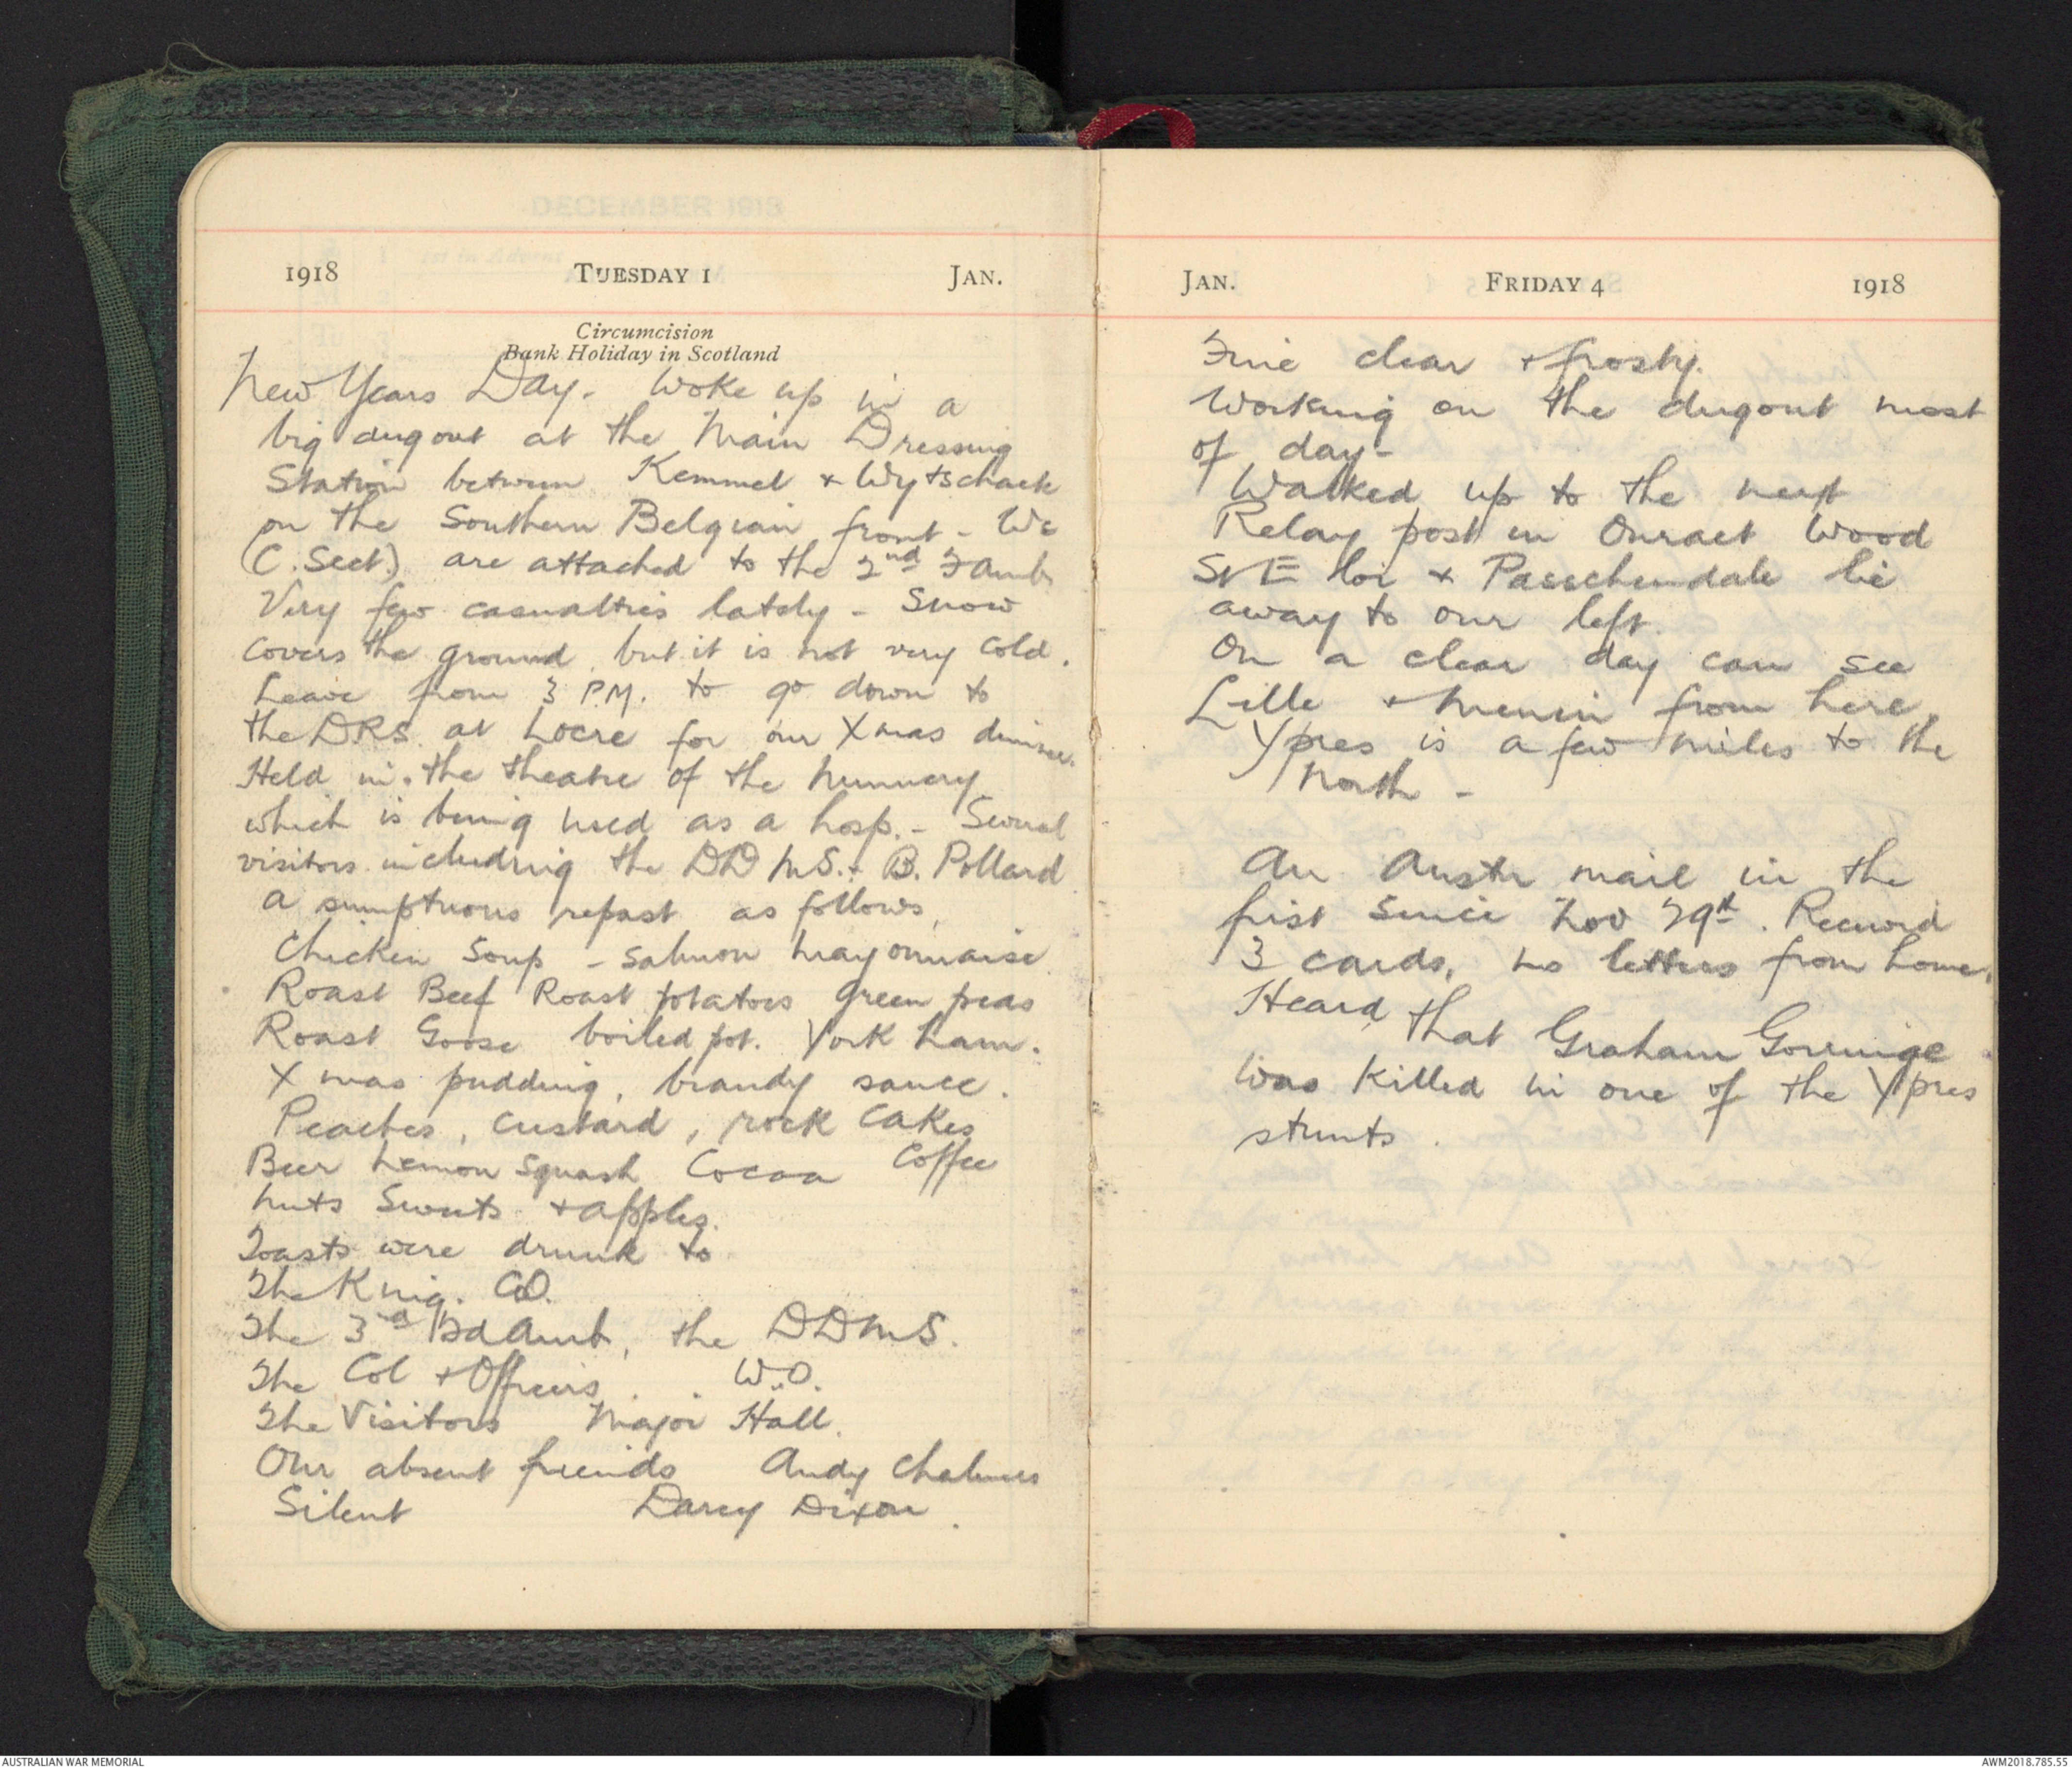 1918 TUESDAY 1 JAN.
Circumcision
Bank Holiday in Scotland
New Years Day. Woke up in a
big dugout at the Main Dressing
Station between Kemmel + Wytschaete
on the Southern Belgian front - We
(C. Sect.) are attached to the 2nd F amb
Very few casualties lately - Snow
covers the ground, but it is not very cold.
Leave from 3 P.M. to go down to
the DRS. at Locre for our Xmas dinner.
Held in the theatre of the Nunnery
which is being used as a hosp. - Several
visitors including the DDMS. + B. Pollard
A sumptuous repast as follows,
Chicken Soup - Salmon Mayonnaise
Roast Beef Roast potatoes green peas
Roast Goose boiled pot. York Ham.
Xmas pudding, brandy sauce.
Peaches, custard, rock cakes
Beer Lemon Squash Cocoa Coffee
nuts Sweets + apples.
Toasts were drunk to
The King. CO.
The 3rd Fd Amb, the DDMS.
The Col + Officers . . W.O.
The Visitors Major Hall.
Our absent friends Andy Chalmers
Silent Darcy Dixon.
JAN. FRIDAY 4 1918
Fine clear + frosty.
Working on the dugout most
of day -
Walked up to the next
Relay post in Onraet Wood
St E loi + Passchendale lie
away to our left.
On a clear day can see
Lille + Menin from here.
Ypres is a few miles to the
North -
An Austr mail in the
first since Nov 29th. Received
3 cards, no letters from home.
Heard that Graham Gorringe
was killed in one of the Ypres
stunts.
AUSTRALIAN WAR MEMORIAL
AWM2018.785.55